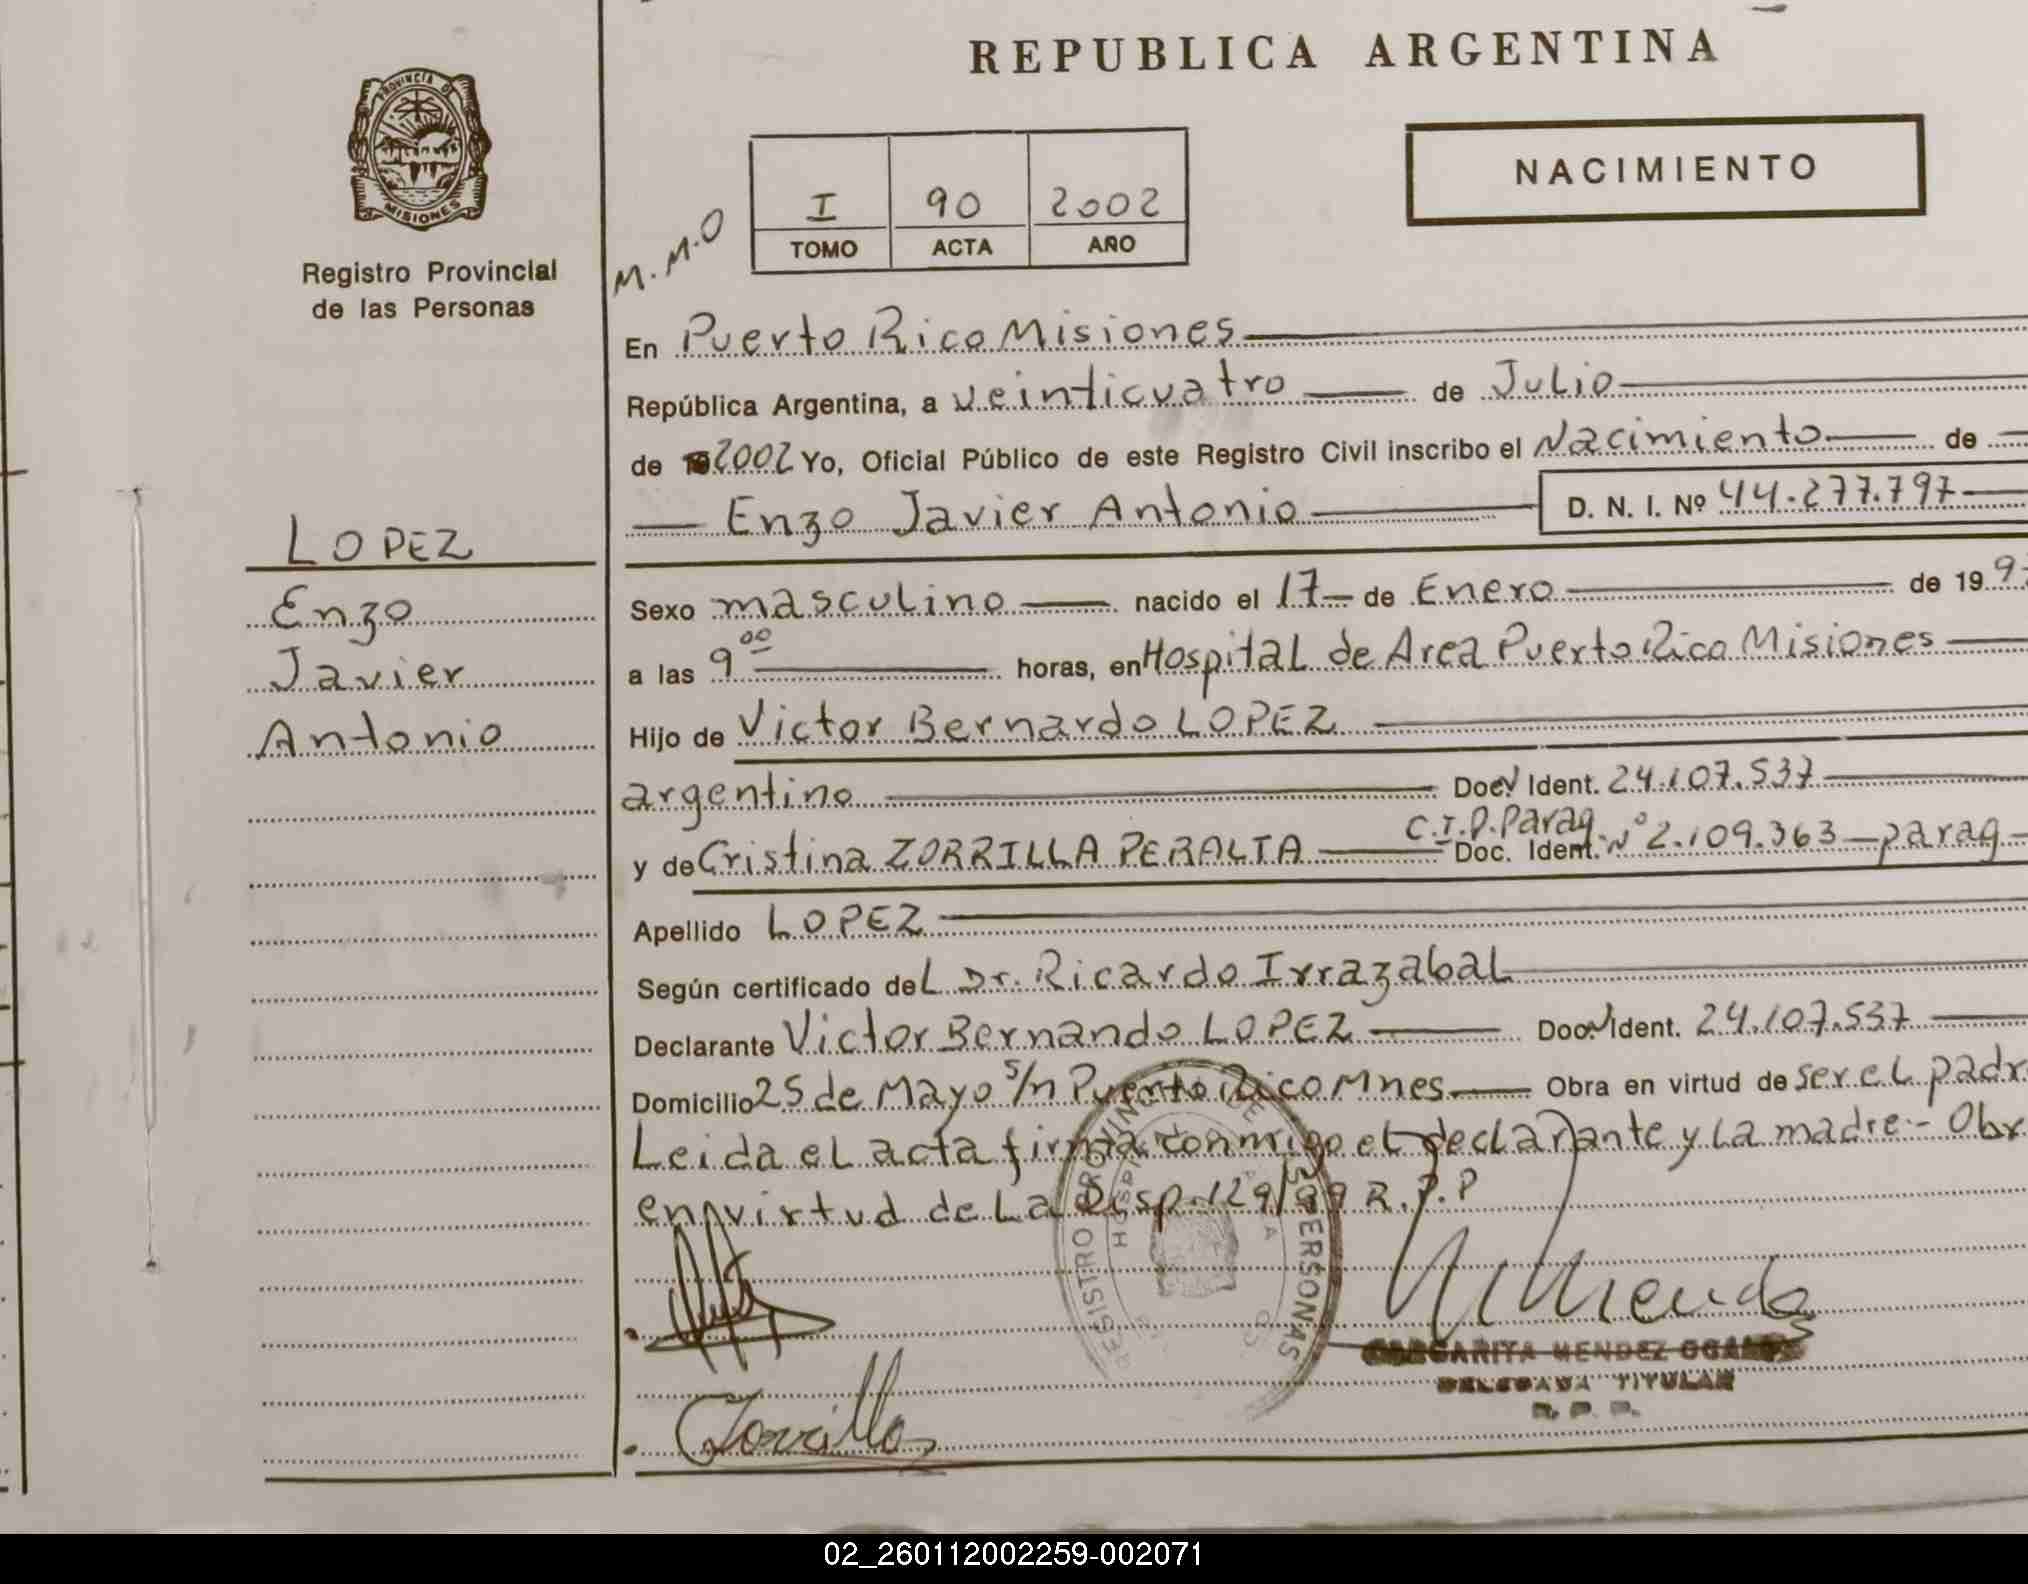 REPUBLICA ARGENTINA
PROVINCIA DE
MISIONES
Registro Provincial
de las Personas
NACIMIENTO
M.M.O
I 90 2002
TOMO ACTA AÑO
En Puerto Rico Misiones
República Argentina, a veinticuatro de Julio
de 2002 Yo, Oficial Público de este Registro Civil inscribo el Nacimiento de
Enzo Javier Antonio D. N. I. Nº 44.277.797
LOPEZ
Enzo
Javier
Antonio
Sexo masculino nacido el 17 de Enero de 19 9
a las 9 00 horas, en Hospital de Area Puerto Rico Misiones
Hijo de Victor Bernardo LOPEZ
argentino Doc. Ident. 24.107.537
C.I.P. Parag.
y de Cristina ZORRILLA PERALTA Doc. Ident. Nº 2.109.363 parag
Apellido LOPEZ
Según certificado del Dr. Ricardo Irrazabal
Declarante Victor Bernando LOPEZ Doc. Ident. 24.107.537
Domicilio 25 de Mayo s/n Puerto Rico Mnes Obra en virtud de ser el padr
Leida el acta firma conmigo el declarante y la madre.- Obr
en virtud de la Disp. 129/99 R.P.P
REGISTRO PROVINCIAL DE PERSONAS
Zorrilla
MARGARITA MENDEZ
DELEGADA TITULAR
R. P. P.
02_260112002259-002071